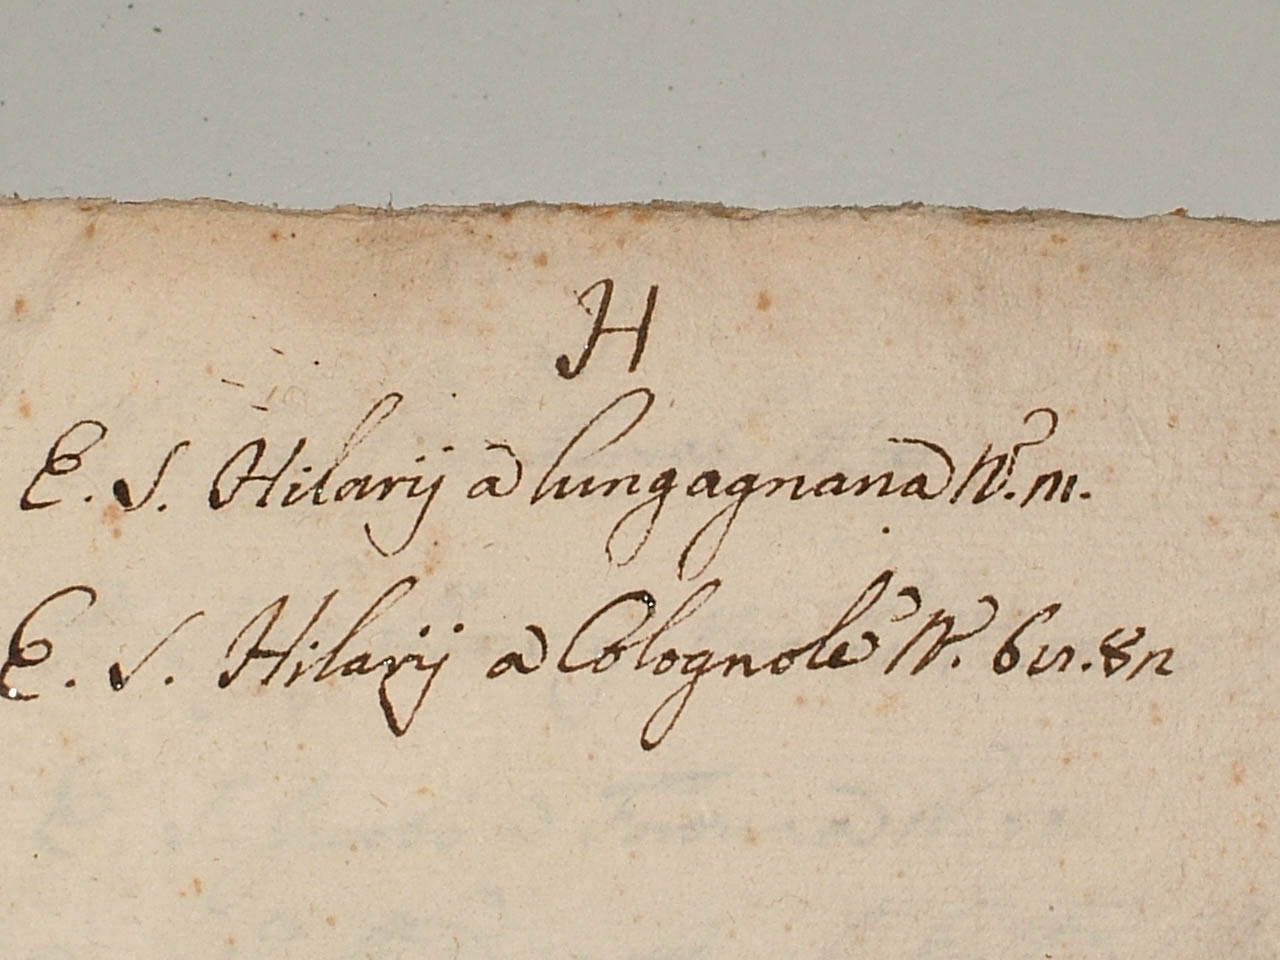 H
E. S. Hilarij a lungagnana N. m.
E. S. Hilarij a Colognole N.